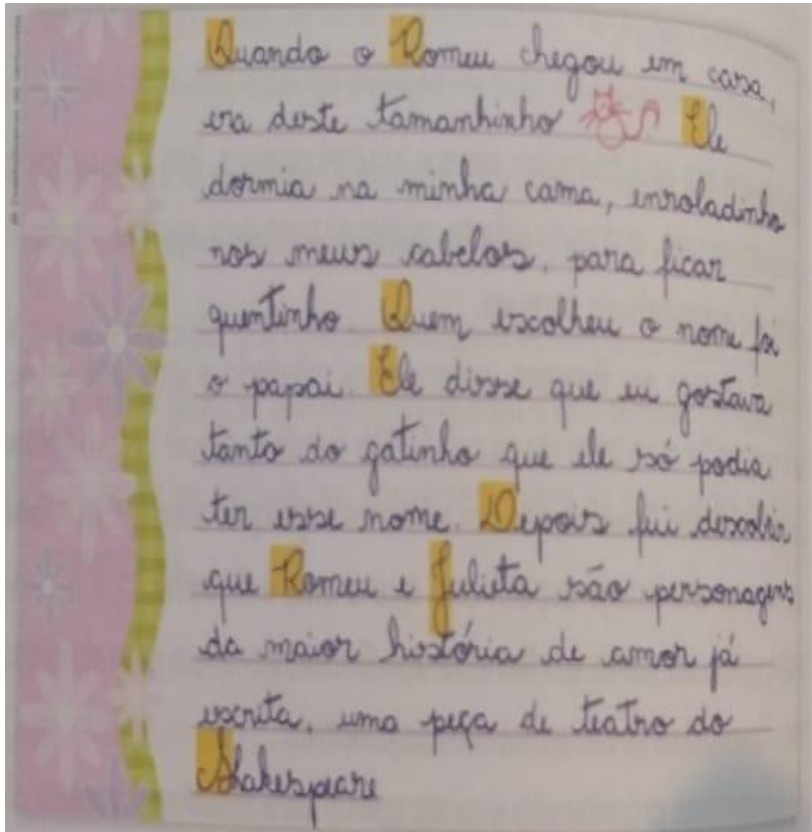 Quando o Romeu chegou em casa,
era deste tamanhinho Ele
dormia na minha cama, enroladinho
nos meus cabelos, para ficar
quentinho Quem escolheu o nome foi
o papai. Ele disse que eu gostava
tanto do gatinho que ele só podia
ter esse nome. Depois fui descobrir
que Romeu e Julieta são personagens
da maior história de amor já
escrita, uma peça de teatro do
Shakespeare